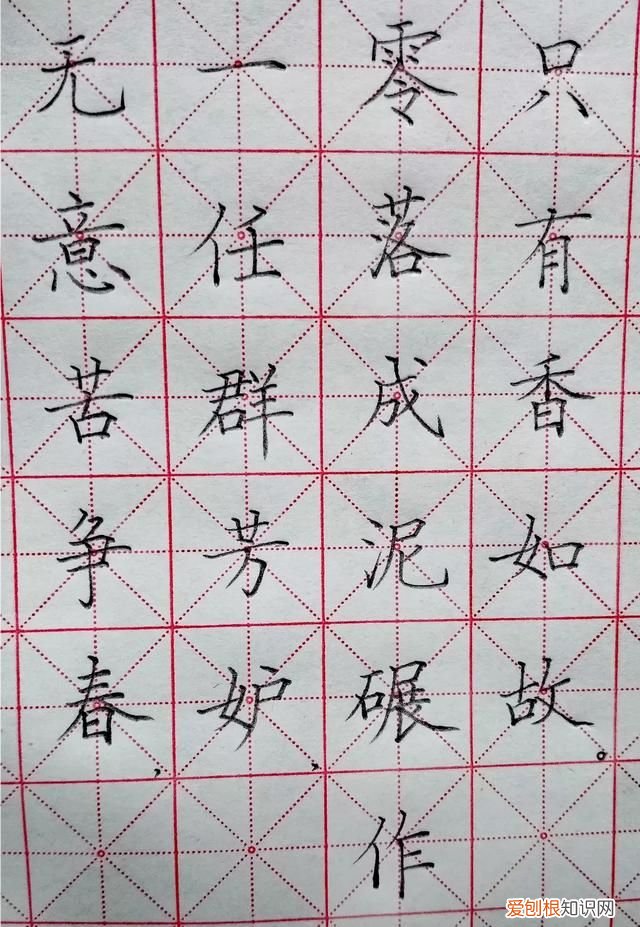 无意苦争春，
一任群芳妒，
零落成泥碾作
只有香如故。
爱刨根知识网